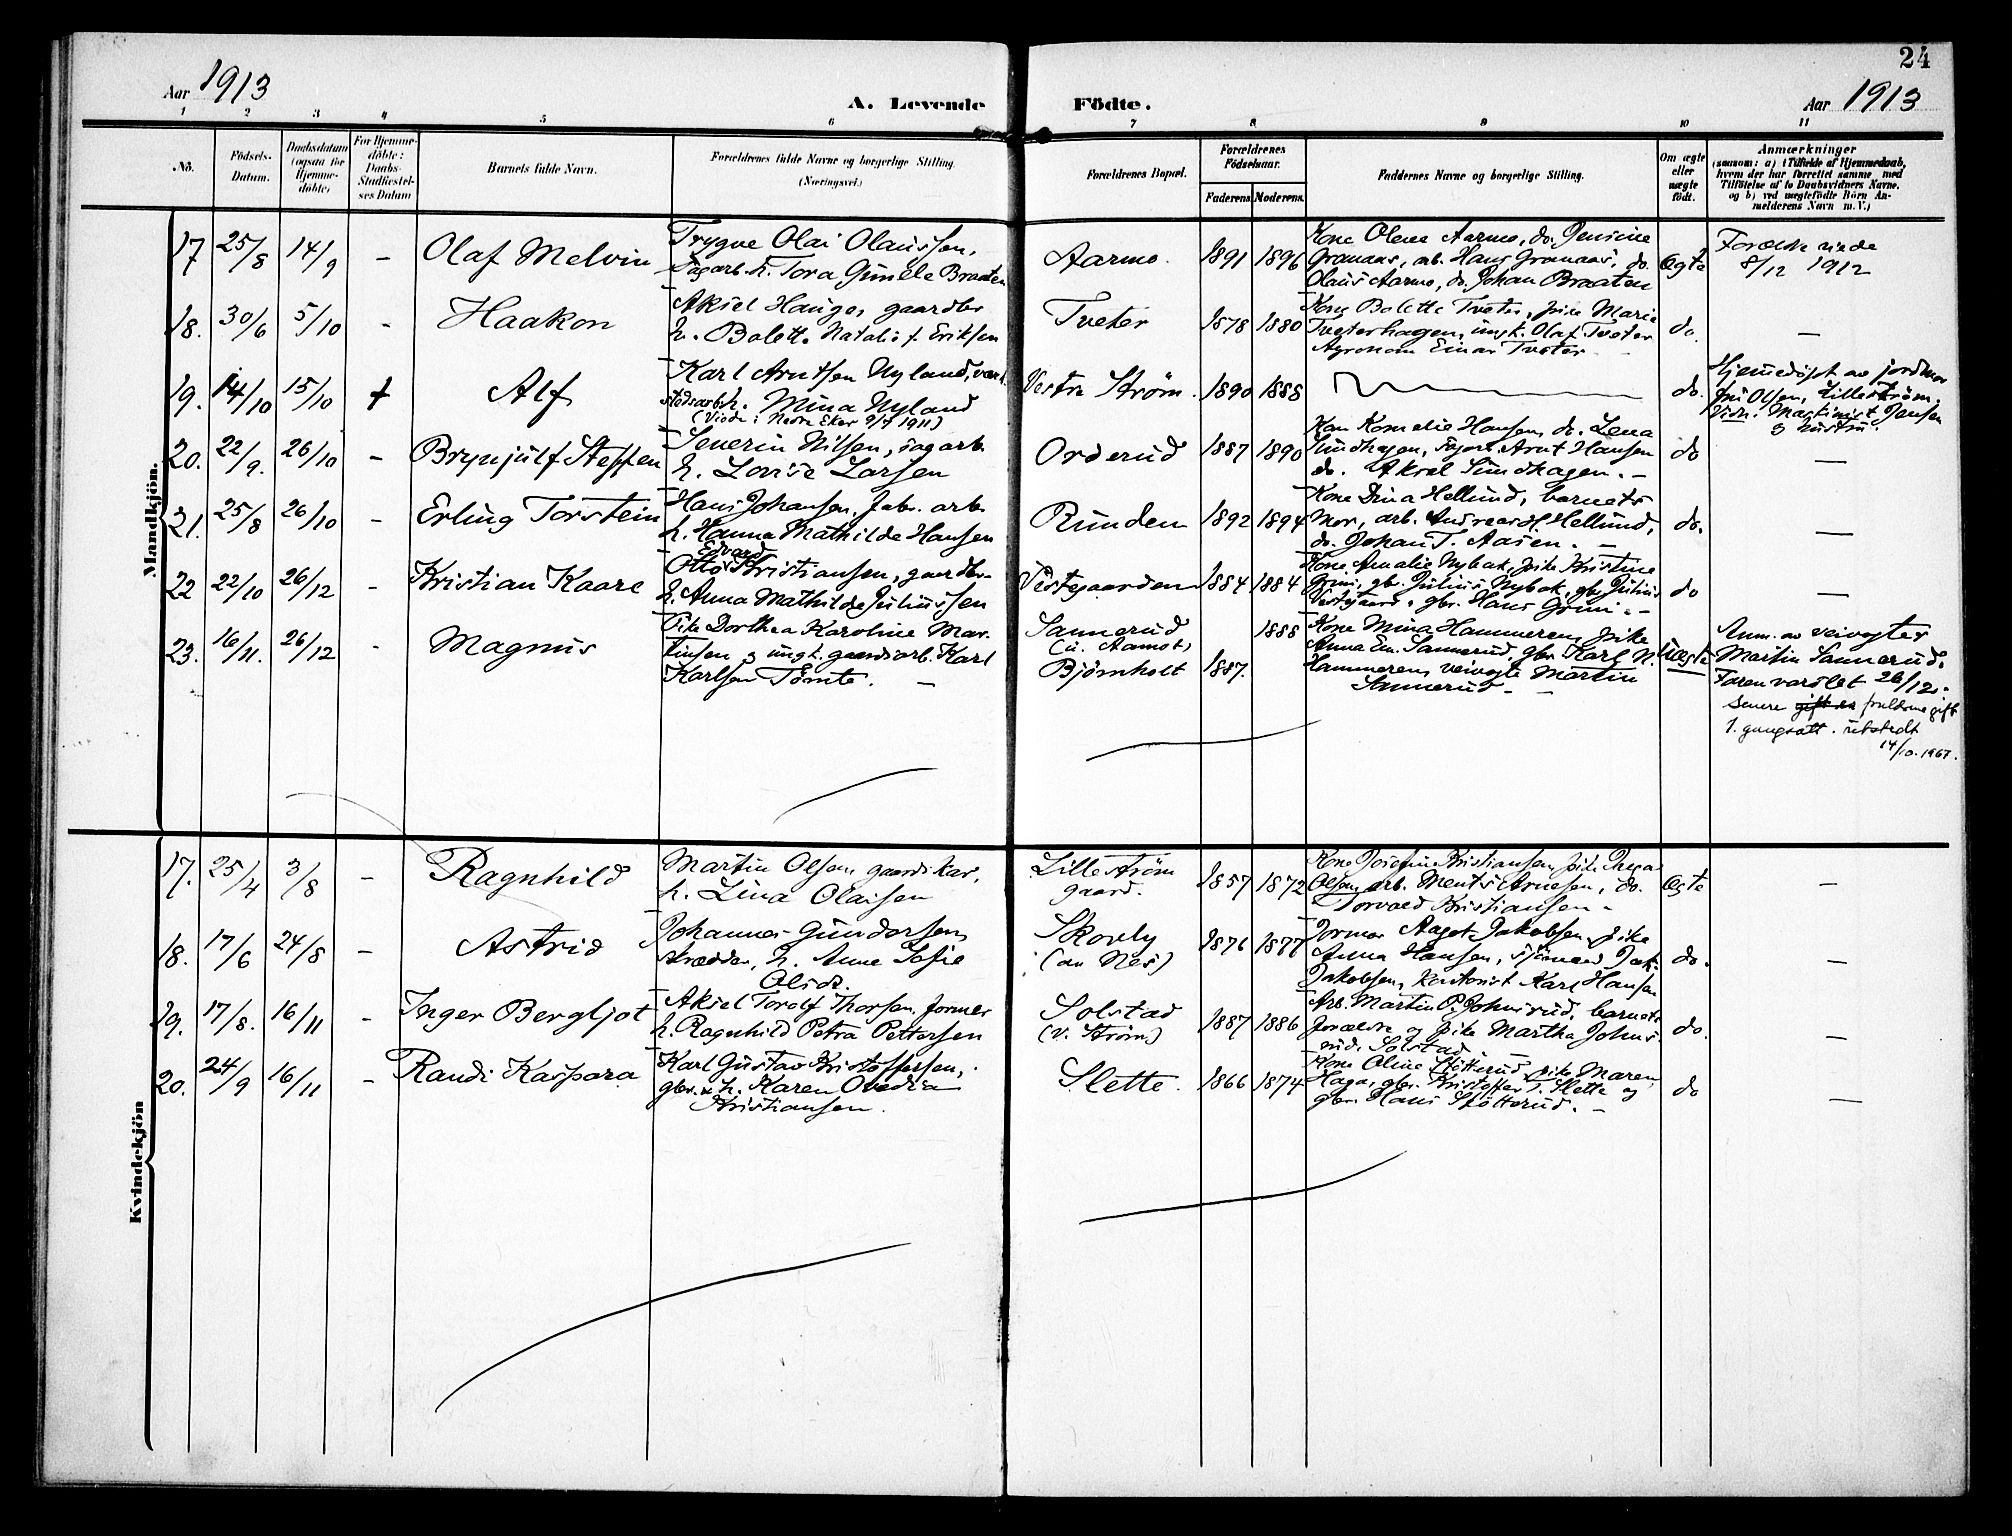 24
Aar 1913
A. Levende Födte.
Aar 1913
1 2 3 4 5 6 7 8 9 10 11
No.
Födsels-
Datum.
Daabsdatum
(ogsaa for
Hjemme-
döbte)
For Hjemme-
döbte:
Daabs-
Stadfæstel-
ses Datum
Barnets fulde Navn.
Forældrenes fulde Navne og borgerlige Stilling.
(Næringsvei.)
Forældrenes Bopæl.
Forældrenes
Födselsaar.
Faderens Moderens
Faddernes Navne og borgerlige Stilling.
Om ægte
eller
uægte
födt.
Anmærkninger
(saasom: a) i Tilfælde af Hjemmedaab,
hvem der har forrettet samme, med
Tilföielse af to Daabsvidners Navne,
og b) ved uægtefödte Börn An-
melderens Navn m. V.)
Mandkjön.
17 25/8 14/9 - Olaf Melvin
Trygve Olai Olaussen,
sagarb. h. Tora Gunele Braaten
Aarmo. 1891 1896
Kone Olene Aarmo, do. Jensine
Granaas, arb. Hans Granaas, do.
Olaus Aarmo, do. Johan Braaten
Ægte
Forældre viede
8/12 1912
18. 30/6 5/10 - Haakon
Aksel Hauger, gaardbr
h. Bolette Natalie f. Eriksen
Tveter 1878 1880
Kone Bolette Tveter, pike Marie
Tveterhagen, ungk. Olaf Tveter
Agronom Einar Tveter
do. -
19. 14/10 15/10 + Alf
Karl Arntsen Nyland, verk-
stedsarb. h. Mina Nyland
(Viede i Nedre Eker 9/7 1911)
Vestre Ström. 1890 1888
do.
Hjemmedöpt av jordmor
fru Olsen, Lilleström.
Vidn. Martinius Jensen
og hustru.
20. 22/9. 26/10 - Brynjulf Steffen
Severin Nilsen, sagarb.
h. Lovise Larsen
Orderud 1887 1890
Kone Kornelie Hansen, do. Lena
Sundhagen, sagarb. Arnt Hansen
do. Aksel Sundhagen. -
do -
21. 25/8 26/10 - Erling Torstein
Hans Johansen, fabr. arb.
h. Hanna Mathilde Hansen
Runden 1892 1894
Kone Dina Hellund, barnets
Mor, arb. Andreas H. Hellund,
do. Johan T. Aasen. -
do. -
22 22/10 26/12 - Kristian Kaare
Edvard
Otto Kristiansen, gaardbr.
h. Anna Mathilde Juliussen
Vestgaarden 1884 1884
Kone Amalie Nybak, pike Kristine
Gruni, gbr. Julius Nybak, gbr. Julius
Vestgaard, gbr. Hans Gruni. -
do -
23. 16/11. 26/12 - Magnus
Pike Dorthea Karoline Mar-
tinsen og ungk. gaardsarb. Karl
Karlsen Tömte. -
Sannerud
(u. Aamot)
1888
Björnholt 1887.
Kone Mina Hammeren, pike
Anna Em. Sannerud, gbr. Karl N.
Hammeren, veivogte Martin
Sannerud -
Uægte
Anm. av veivogter
Martin Sannerud.
Faren varslet 26/12.
Senere gift foreldrene gift
1. gangsatt. utstedt
14/10. 1967.
Kvindekjön
17. 25/4 3/8 - Ragnhild
Martin Olsen, gaardskar,
h. Lina Olaisen
Lilleström
gaard.
1857 1872
Kone Josefine Kristiansen, pike Inga
Olsen, arb. Ments Arnesen, do.
Torvald Kristiansen -
Ægte -
18. 17/6 24/8 - Astrid
Johannes Gundersen,
skrædder, h. Anne Sofie
Olsdr.
Skovly
(av Nes)
1876 1877
Jormor Aagot Jakobsen, pike
Anna Hansen, sjömand Jak.
Jakobsen, Kontorist Karl Hansen
do. -
19. 17/8. 16/11 - Inger Bergljot
Aksel Toralf Thorsen, former
h. Ragnhild Petra Pettersen
Solstad
(v. Ström)
1887 1886
Arb. Martin P. Johnsrud, barnets
forældre og pike Martha Johns-
rud. Solstad
do. -
20. 24/9 16/11 - Randi Kaspara
Karl Gustav Kristoffersen,
gbr. & h. Karen Ovedia
Kristiansen.
Slette. 1866 1874
Kone Oline Stötterud, pike Maren
Haga, gbr. Kristoffer T. Slette og
gbr. Hans Stötterud. -
do -